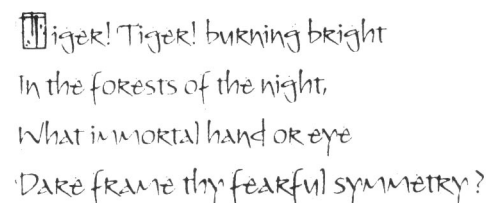 Tiger! Tiger! burning bright
In the forests of the night,
What immortal hand or eye
Dare frame thy fearful symmetry?